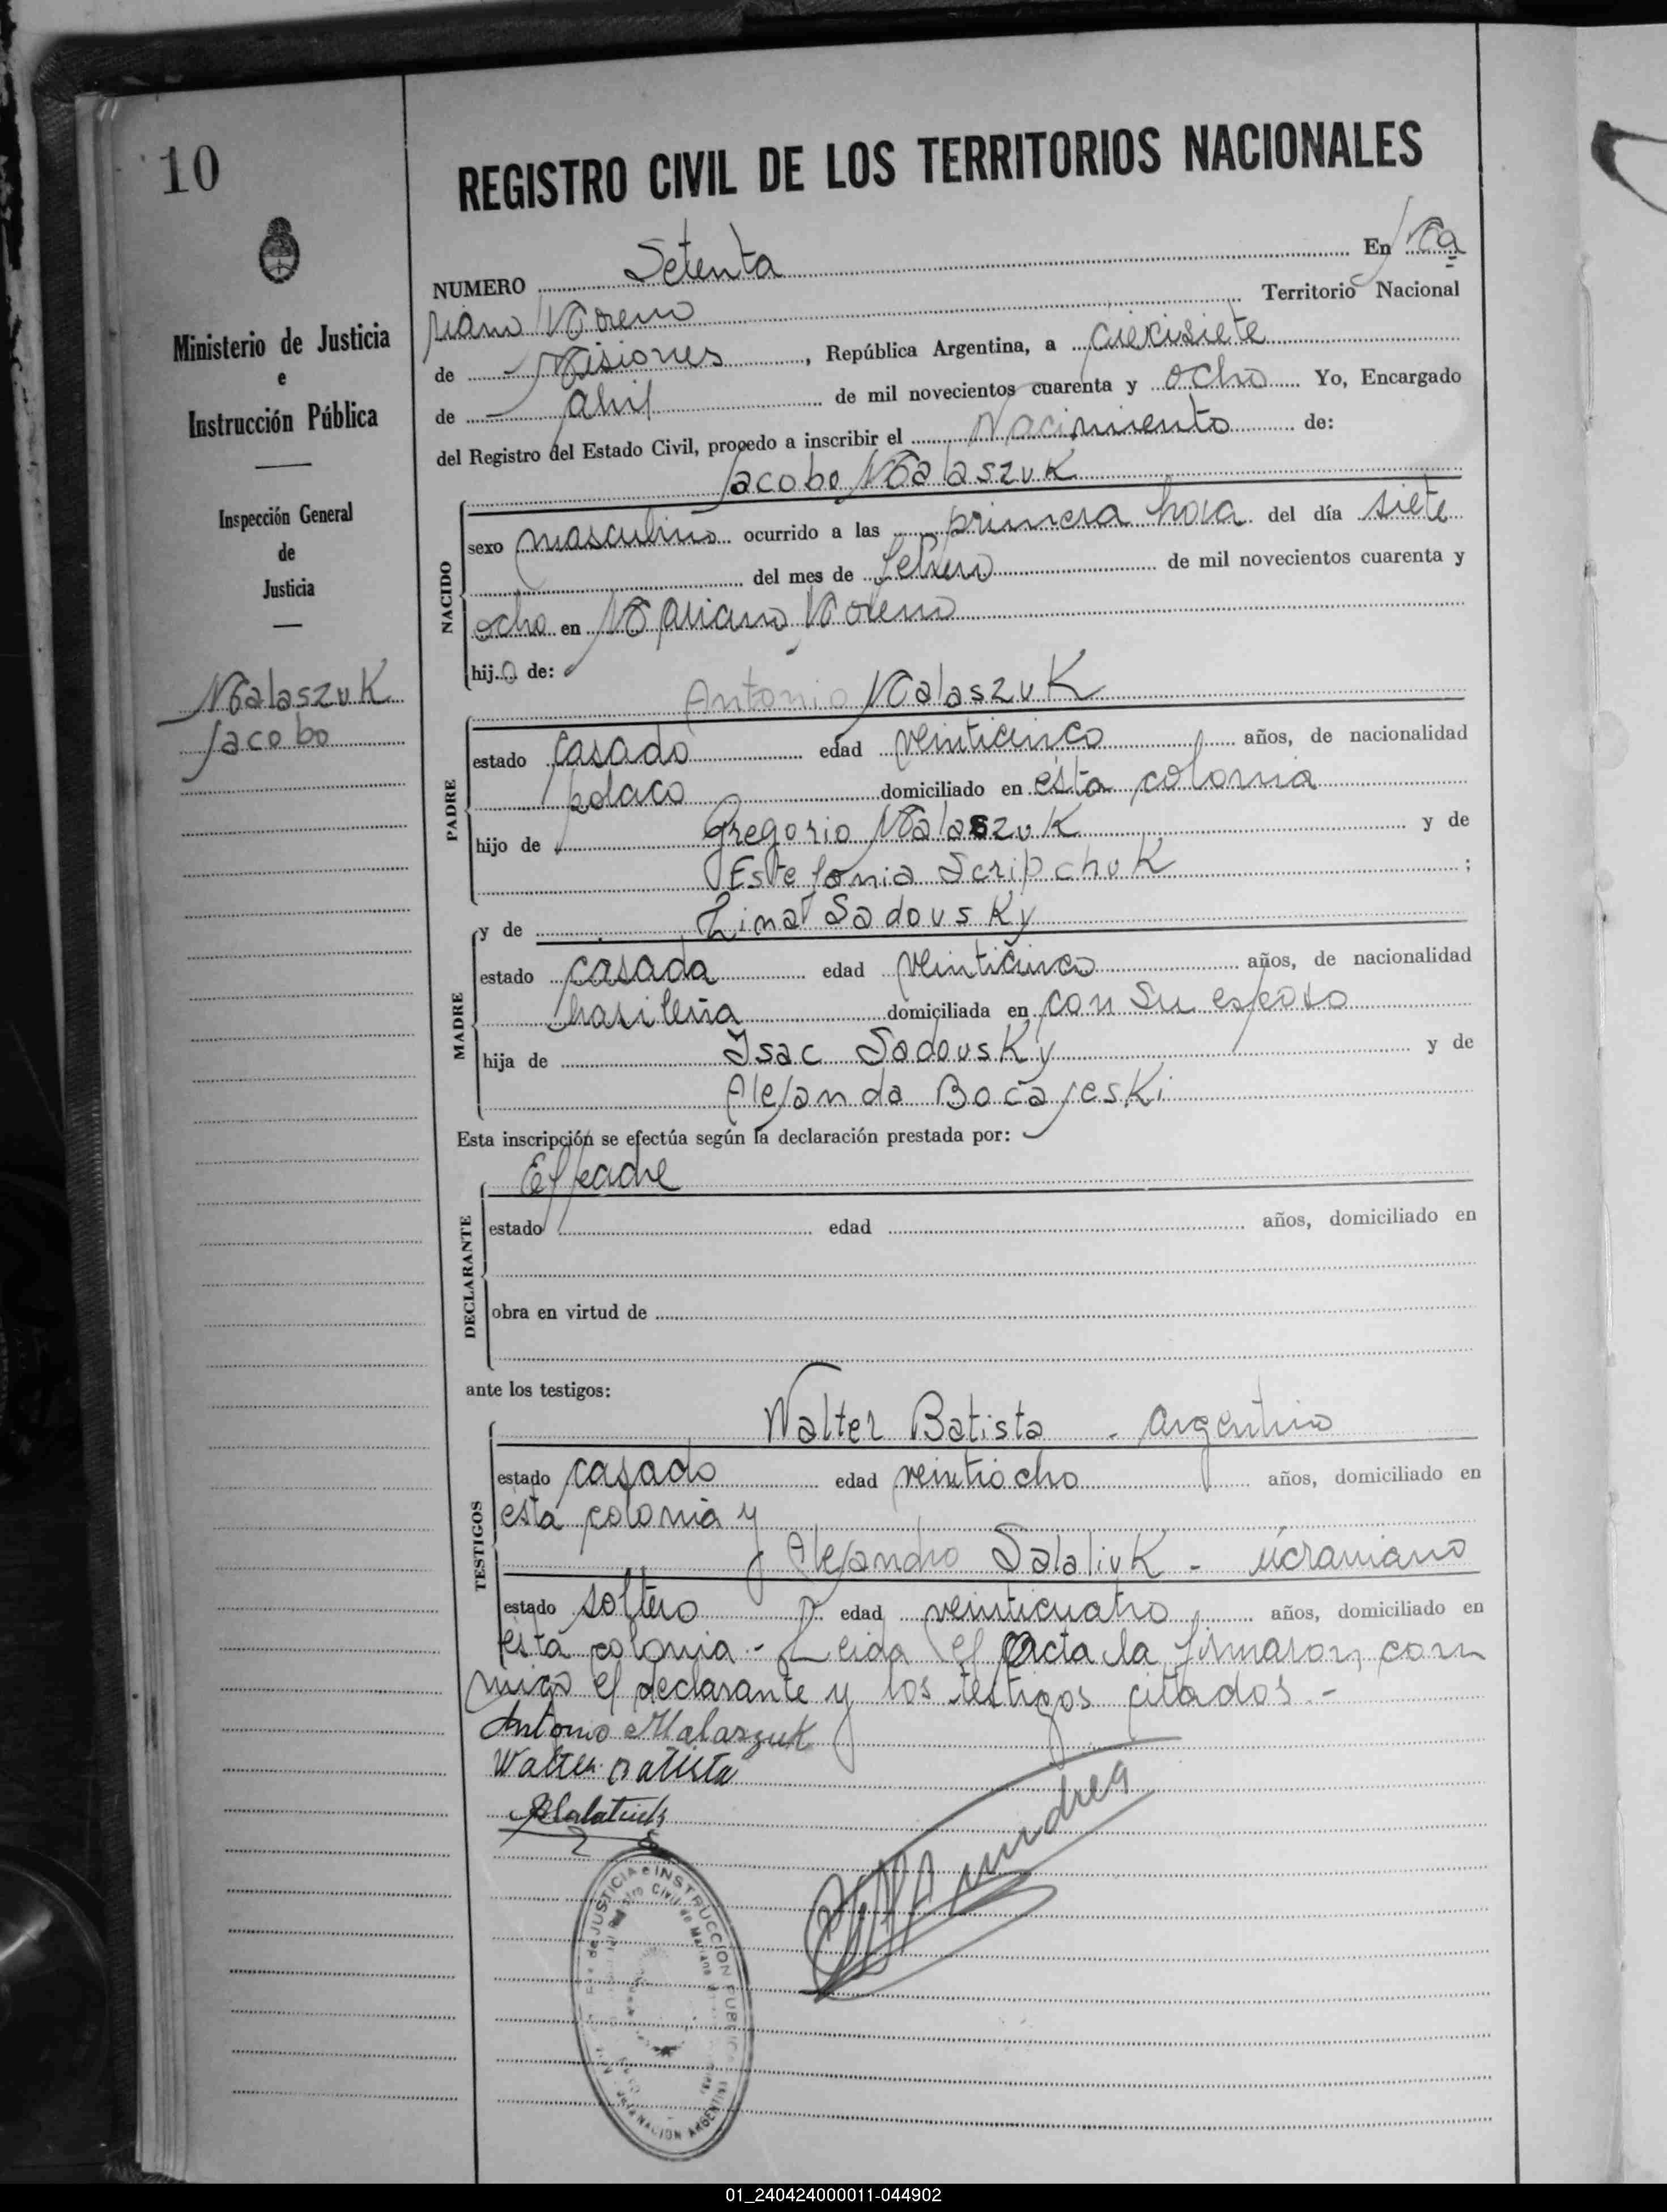 10
Ministerio de Justicia
e
Instrucción Pública
Inspección General
de
Justicia
Malaszuk
Jacobo
REGISTRO CIVIL DE LOS TERRITORIOS NACIONALES
NUMERO Setenta En Ma
riano Moreno Territorio Nacional
de Misiones, República Argentina, a diecisiete
de abril de mil novecientos cuarenta y ocho Yo, Encargado
del Registro del Estado Civil, procedo a inscribir el Nacimiento de:
Jacobo Malaszuk
NACIDO
sexo masculino ocurrido a las primera hora del día siete
del mes de febrero de mil novecientos cuarenta y
ocho en Mariano Moreno
hijo de:
Antonio Malaszuk
PADRE
estado casado edad veinticinco años, de nacionalidad
polaco domiciliado en ésta colonia
hijo de Gregorio Malaszuk y de
Estefania Scripchuk ;
MADRE
y de Lina Sadovsky
estado casada edad veinticinco años, de nacionalidad
brasileña domiciliada en con su esposo
hija de Isac Sadovsky y de
Alejanda Bocajeski
Esta inscripción se efectúa según la declaración prestada por:
El padre
DECLARANTE
estado edad años, domiciliado en
obra en virtud de
ante los testigos:
TESTIGOS
Walter Batista - argentino
estado casado edad veintiocho años, domiciliado en
ésta colonia y
Alejandro Salaliuk - úcraniano
estado soltero edad veinticuatro años, domiciliado en
ésta colonia - Leida el acta la firmaron con
migo el declarante y los testigos citados.-
Antonio Malaszuk
Walter Batista
JUSTICIA e INSTRUCCION PUBLICA
Registro Civil de Mariano
NACION ARGENTINA
01_240424000011-044902